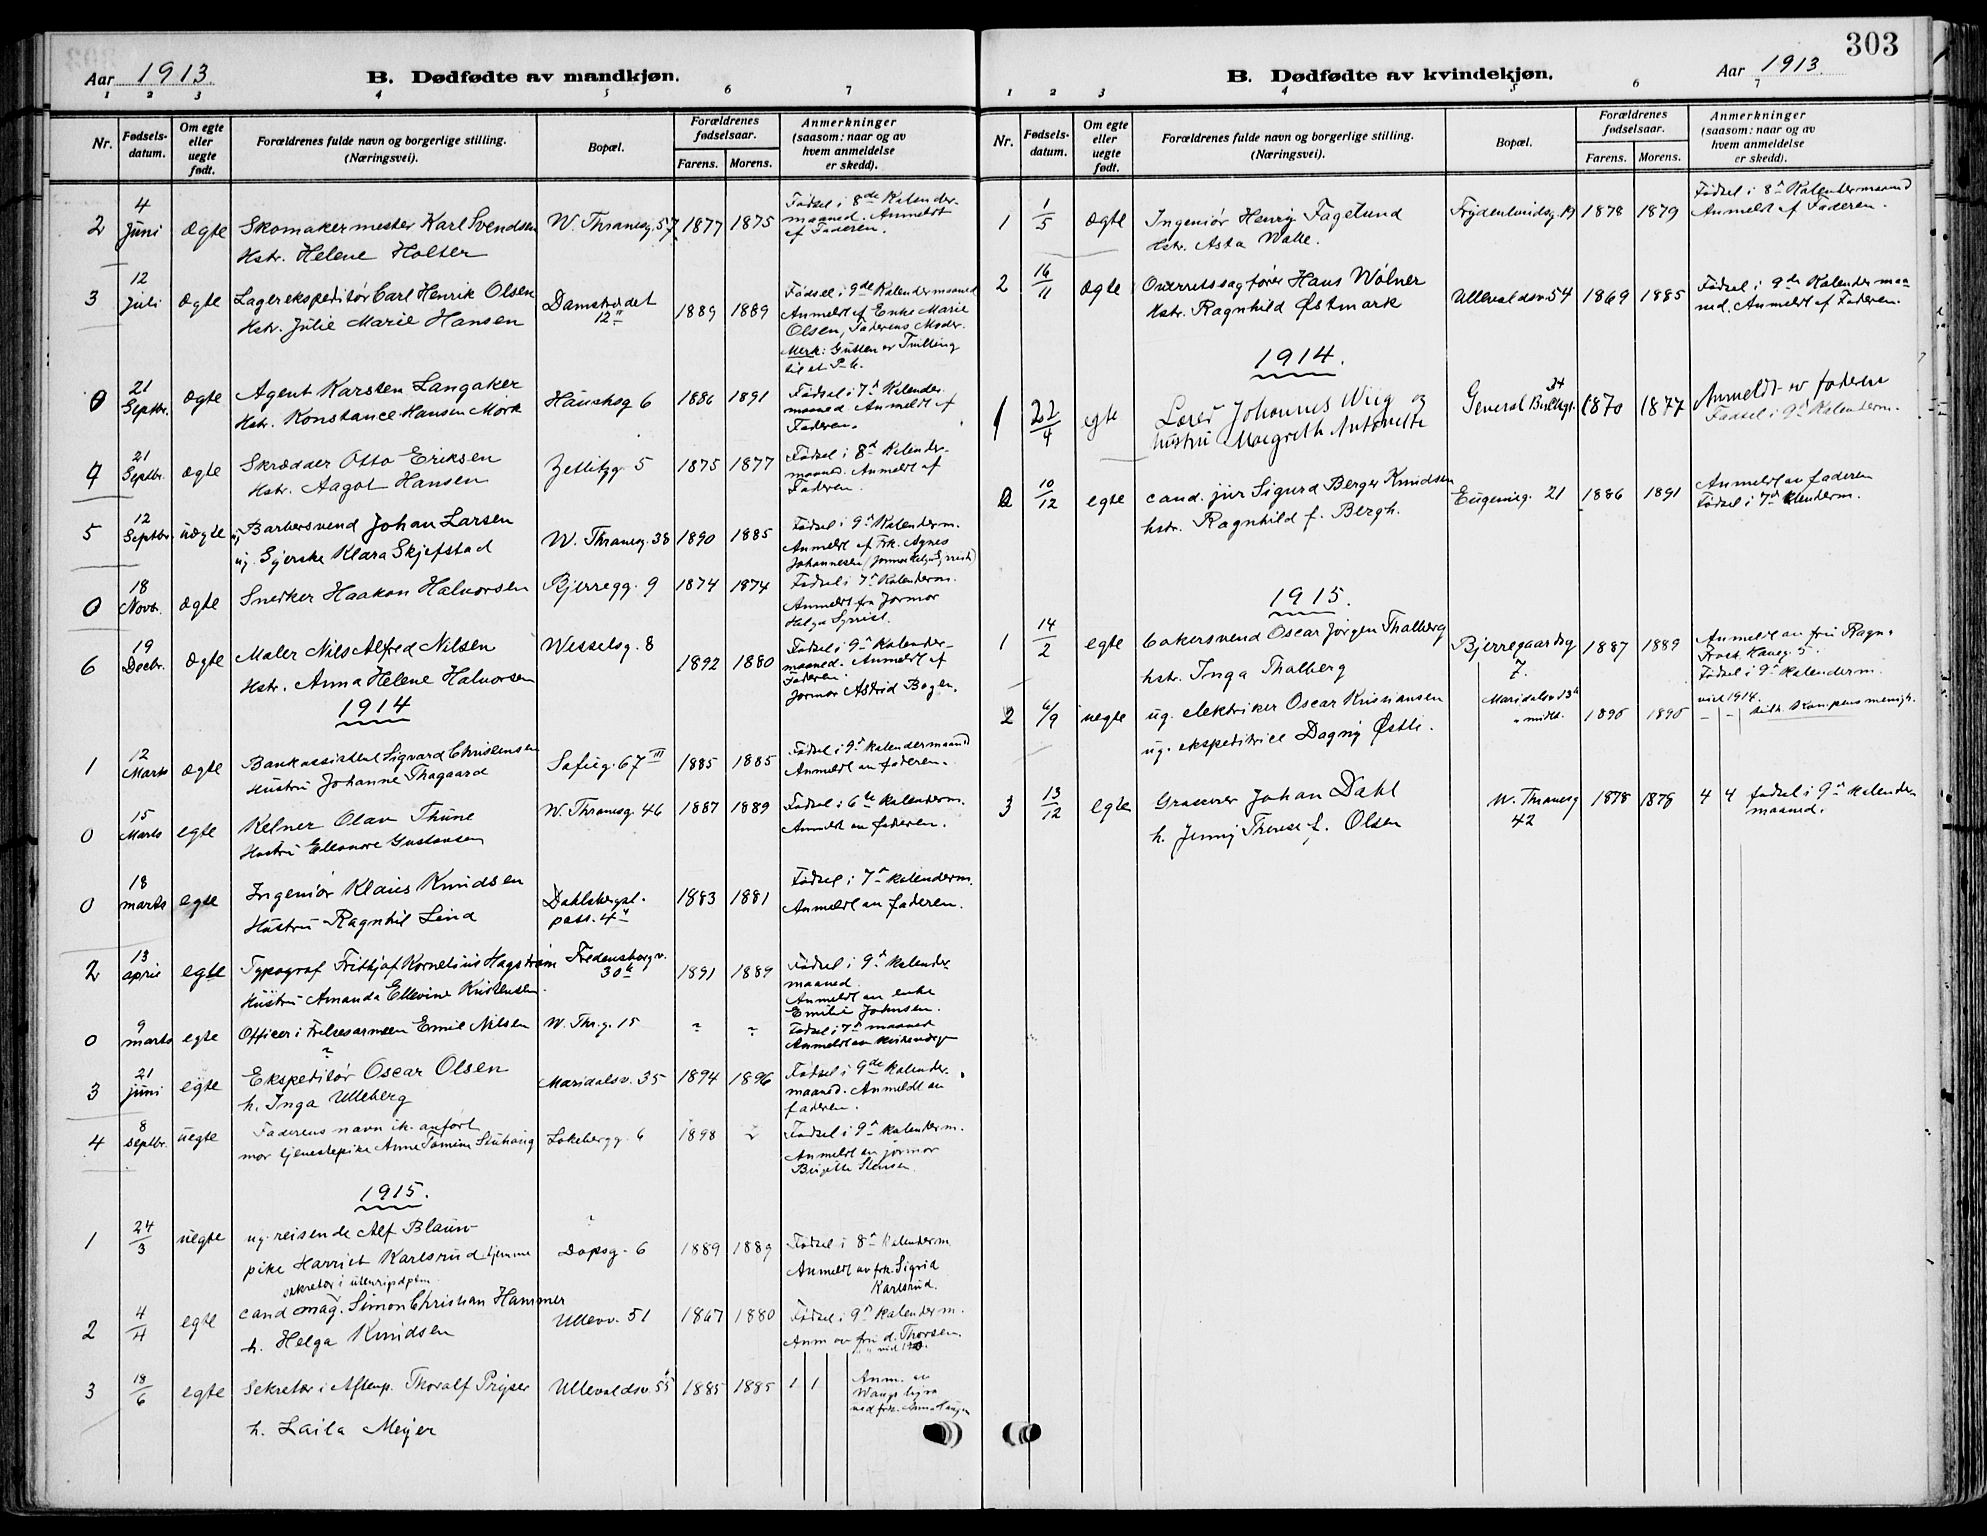 Aar 1913
B. Dødfødte av mandkjøn.
1 2 3 4 5 6 7
Nr.
Fødsels-datum.
Om egte eller uegte født.
Forældrenes fulde navn og borgerlige stilling. (Næringsvei).
Bopæl.
Forældrenes fødselsaar.
Farens. Morens.
Anmerkninger (saasom: naar og av hvem anmeldelse er skedd).
2 4 Juni ægte Skomakermester Karl Svendsen W. Thranesg. 57 1877 1875 Fødsel i 8de Kalender-
Hstr. Helene Holter maaned. Anmeldt
af Faderen.
3 12 Juli ægte Lagerekspeditør Carl Henrik Olsen Damstrædet 12 1889 1889 Fødsel i 9de Kalendermaaned
Hstr. Julie Marie Hansen Anmeldt af Enke Marie
Olsen, Faderens Moder.
Merk: Gutten er Tvilling
til et P.b.
0 21 Septbr. ægte Agent Karsten Langaker Hausksg 6 1886 1891 Fødsel i 7d Kalender
Hstr. Konstance Hansen Mørk maaned Anmeldt af
Faderen.
4 21 Septbr. ægte Skrædder Otto Eriksen Zetlitzg. 5 1875 1877 Fødsel i 8d Kalender-
Hstr. Aagot Hansen maaned. Anmeldt af
Faderen.
5 12 Septbr. uægte Barbersvend Johan Larsen W. Thranesg. 38 1890 1885 Fødsel i 9d Kalenderm.
ug. Syerske Klara Skjefstad Anmeldt af Frk. Agnes
Johannesen
0 18 Novbr. ægte Snedker Haakon Halvorsen Bjerregg. 9 1874 1874 Fødsel i 7d Kalenderm.
Anmeldt fra Jormor
Helga
6 19 Decbr. ægte Maler Nils Alfred Nilsen Wesselsg. 8 1892 1880 Fødsel i 9d Kalender-
Hstr. Anna Helene Halvorsen maaned. Anmeldt af
Faderen.
Jormor Astrid Bogen.
1914
1 12 Marts ægte Bankassistent Sigvard Christensen Sofieg. 67 III 1885 1885 Fødsel i 9d Kalendermaaned
Hustru Johanne Thagaard Anmeldt av faderen.
0 15 Marts egte Kelner Olav Thune W. Thranesg. 46 1887 1889 Fødsel i 6te Kalenderm.
Hustru Eleonore Gustavsen Anmeldt av faderen.
0 18 marts egte Ingeniør Klaus Knudsen Dahlsbergst. 1883 1881 Fødsel i 7d Kalenderm.
Hustru Ragnhil Lind pass. 4 Anmeldt av faderen.
2 13 april egte Typograf Frithjof Kornelius Hagstrøm Fredensborgv. 30 1891 1889 Fødsel i 9d Kalender
Hustru Amanda Ellevine Kristensen. maaned.
Anmeldt av enke
Emilie Johnsen.
0 9 marts egte Officer i Frelsesarmeen Emil Nilsen W. Thr.g. 15 ~ ~ Fødsel i 7d maaned
Anmeldt av
3 21 juni egte Ekspeditør Oscar Olsen Maridalsv. 35 1894 1896 Fødsel i 9de Kalender.
h. Inga Ulleberg maaned. Anmeldt av
faderen.
4 8 septbr. uegte Faderens navn ik. anført Lokebergg. 6 1898 ~ Fødsel i 9d Kalenderm.
mor tjenestepike Anne Tomine Anmeldt av jormor
Birgitte Stensen.
1915.
1 24/3 uegte ug. reisende Alf Blauw Dopsg. 6 1889 1889 Fødsel i 8d Kalenderm
pike Harriet Karlsrud hjemme Anmeldt av frk. Sigrid
Karlsrud.
sekretær i utenrigsdptm.
2 4/4 egte cand mag. Simon Christian Hammer Ullevv. 51 1867 1880 Fødsel i 9d Kalenderm.
h. Helga Knudsen Anm av fru d. Thorsen.
3 18/6 egte Sekretær i Aftenp. Thoralf Pryser Ullevaldsv. 55 1885 1885 1 1 Anm. av
h. Laila Meyer
303
B. Dødfødte av kvindekjøn.
Aar 1913
1 2 3 4 5 6 7
Nr.
Fødsels-datum.
Om egte eller uegte født.
Forældrenes fulde navn og borgerlige stilling. (Næringsvei).
Bopæl.
Forældrenes fødselsaar.
Farens. Morens.
Anmerkninger (saasom: naar og av hvem anmeldelse er skedd).
1 1/5 ægte Ingeniør Henry Fagelund Frydenlundsg. 19 1878 1879 Fødsel i 8d Kalendermaaned
Hstr. Asta Walle. Anmeldt af Faderen.
2 16/11 ægte Overretssagfører Hans Wølner Ullevaldsv. 54 1869 1885 Fødsel i 9de Kalendermaa-
Hstr. Ragnhild Østmark ned. Anmeldt af Faderen.
1914.
1 22/4 egte Lærer Johannes Wiig og General Birchsgt. 34 1870 1877 Anmeldt av faderen
hustru Margreth Antonette Fødsel i 9d Kalenderm.
2 10/12 egte cand. jur Sigurd Berger Knudsen Eugenieg. 21 1886 1891 Anmeldt av faderen
hstr. Ragnhild f. Bergh. Fødsel i 7d Klenderm.
1915.
1 14/2 egte bakersvend Oscar Jørgen Thalberg Bjerregaardsg 7. 1887 1889 Anmeldt av fru Ragn.
hstr. Inga Thalberg
Fødsel i 9d Kalenderm.
2 6/9 uegte ug. elektriker Oscar Kristiansen Maridalsv. 1895 1895
ug. ekspeditrice Dagny Østli.
3 13/12 egte Gravører Johan Dahl W. Thranesg 42 1878 1878 4 4 fødsel i 9d Kalender
h. Jenny Therese f. Olsen maaned.